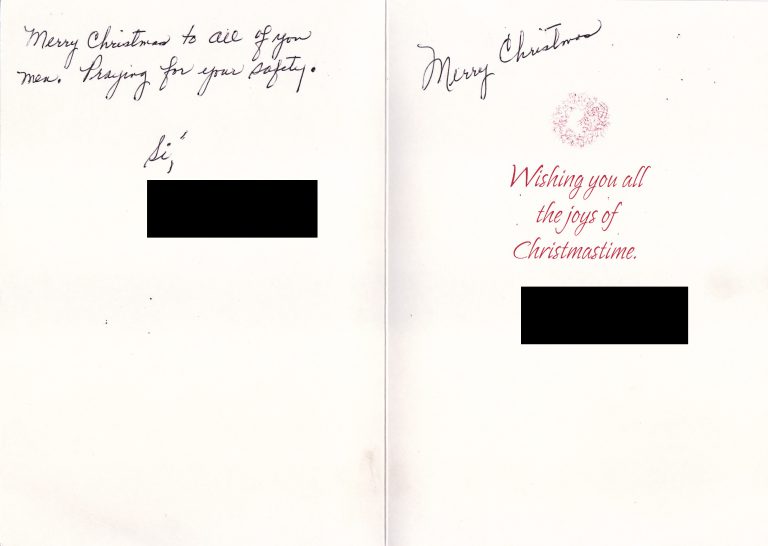 Merry Christmas to all of you
men. Praying for your safety.
Merry Christmas
Wishing you all
the joys of
Christmastime.